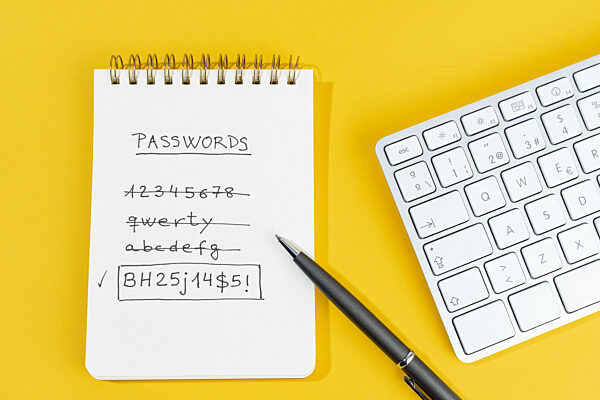 PASSWORDS
12345678
qwerty
abcdefg
✓ BH25j14$5!
esc F1 F2 F3 F4
! 1 " 2 · 3 # $ 4 %
Q W E € R
A S D
< > Z X